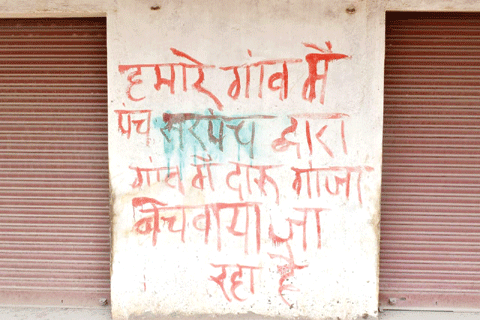 हमारे गांव में
पंच सरपंच द्वारा
गांव में दारू गांजा
बिचवाया जा
रहा है